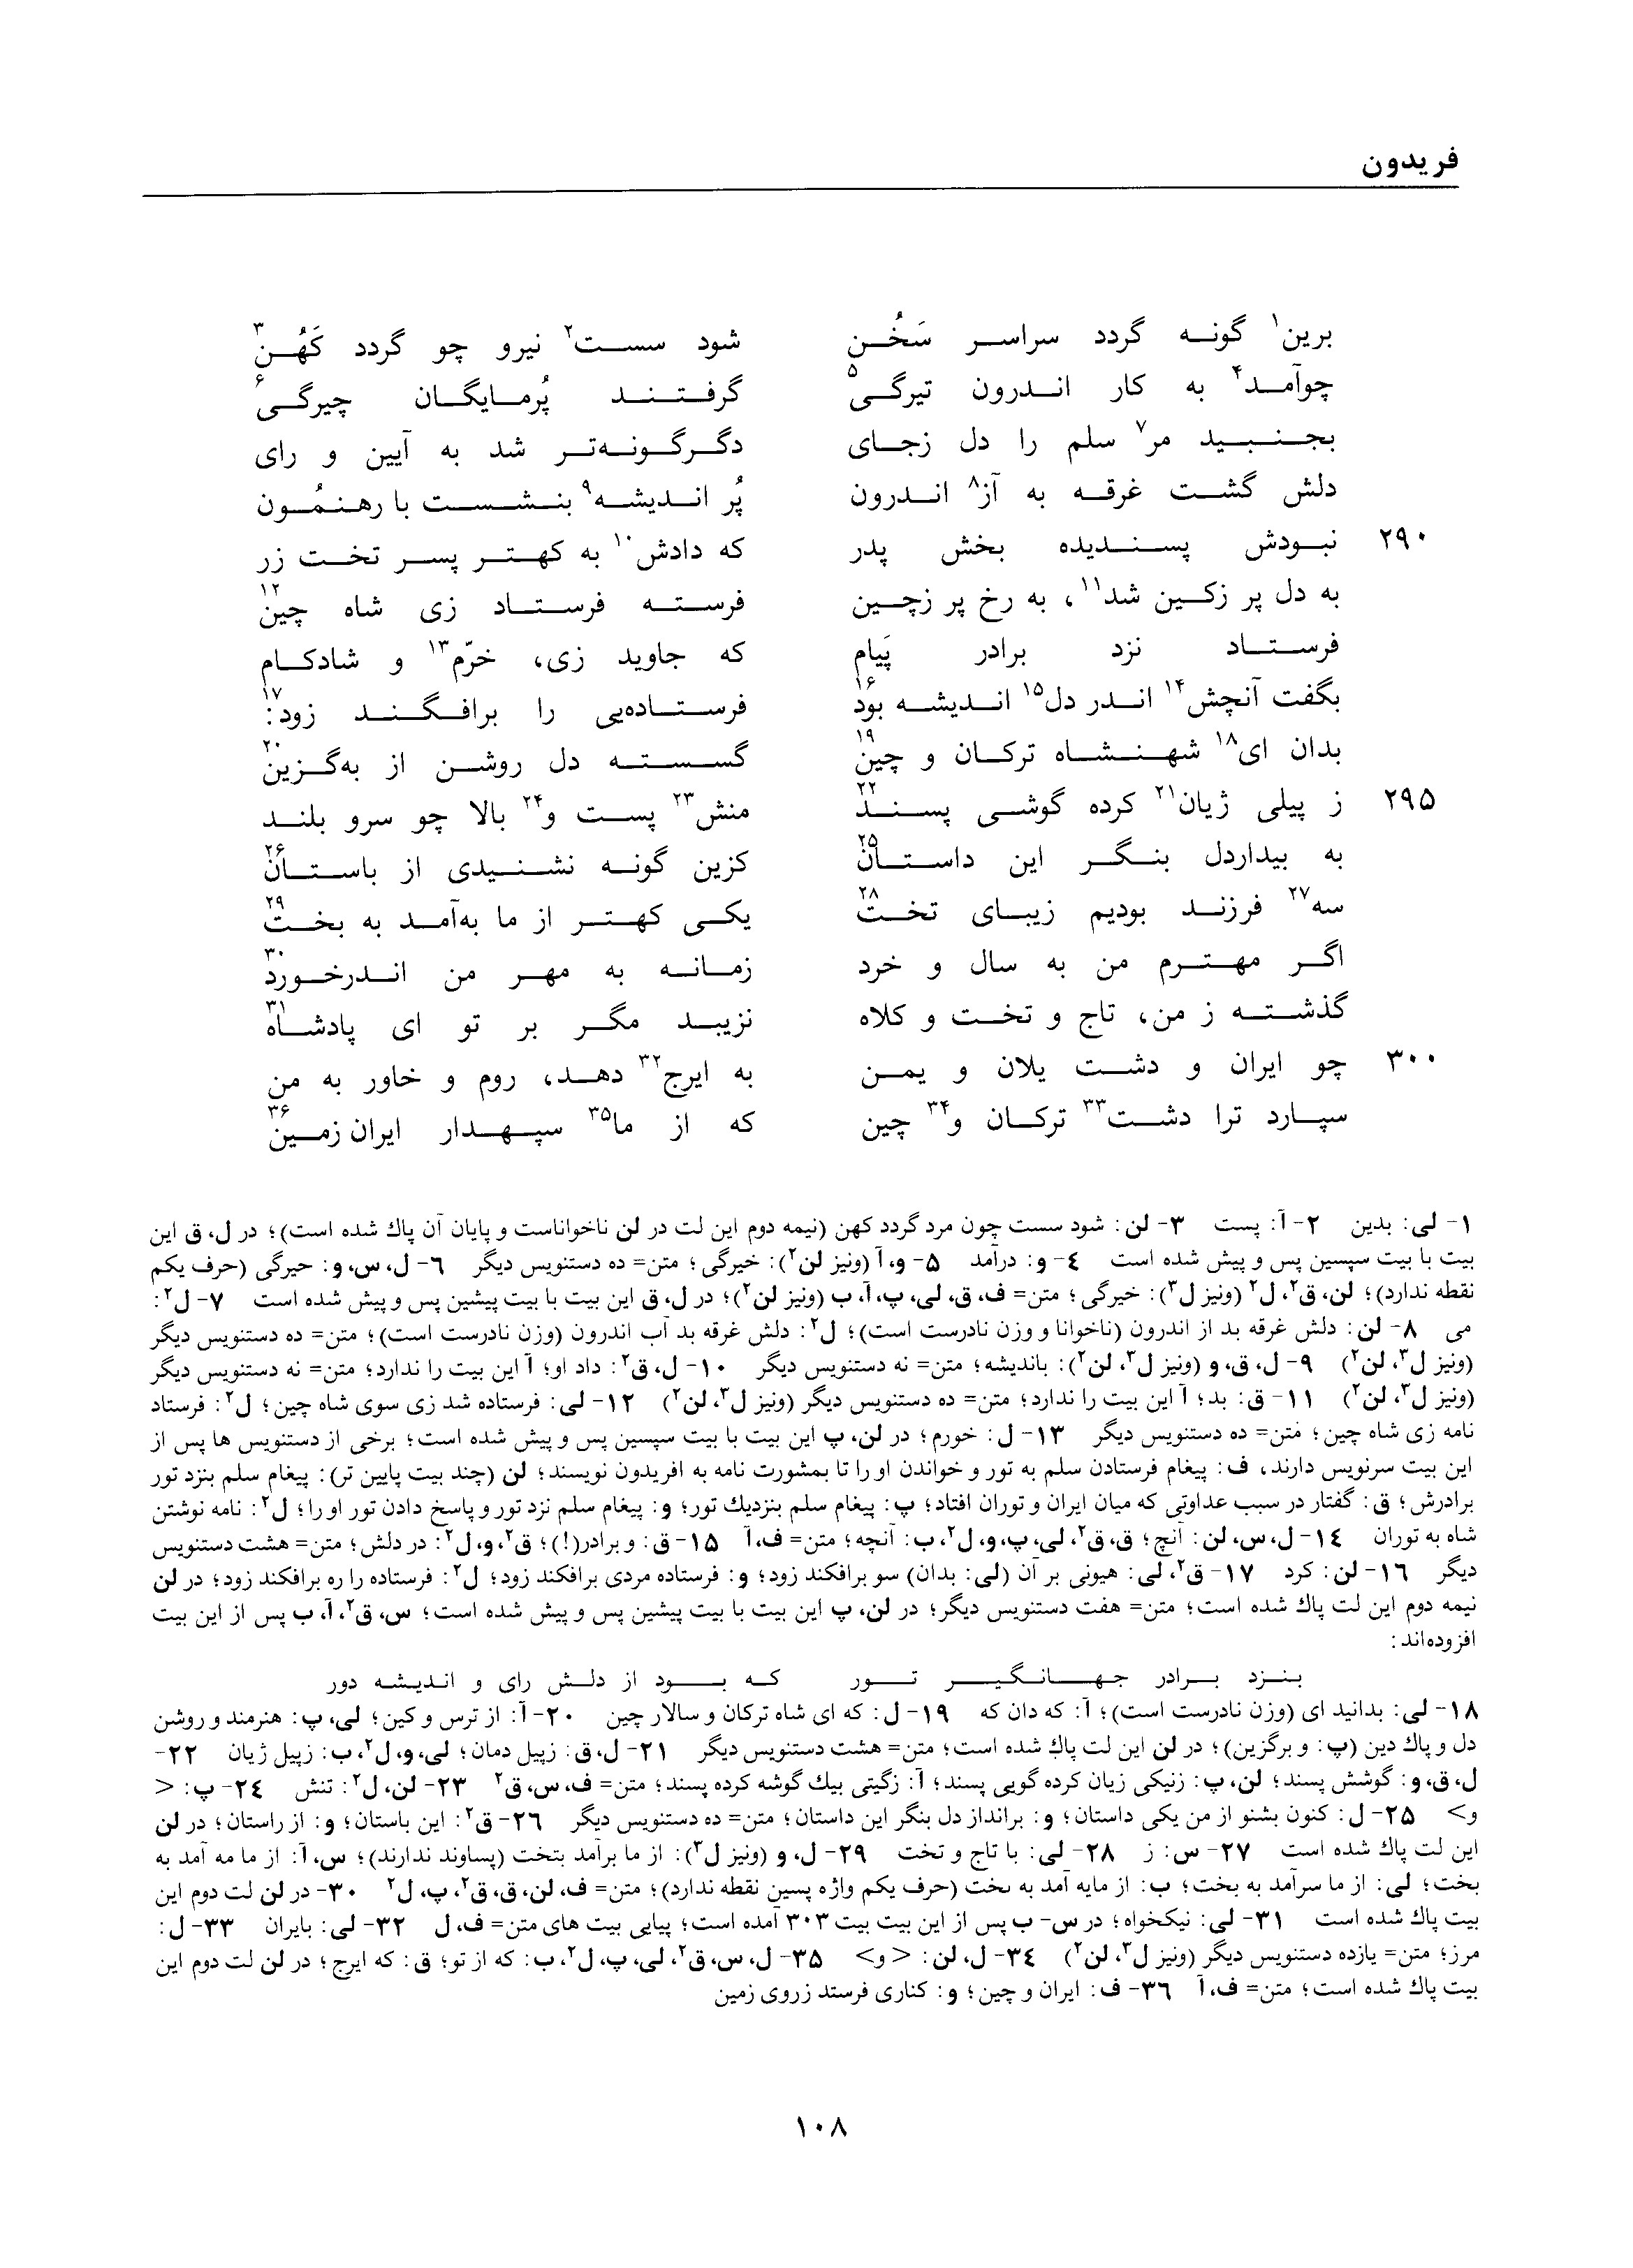 فریدون
برین۱ گونه گردد سراسر سَخُن شود سست۲ نیرو چو گردد کَهُن۳
چوآمد۴ به کار اندرون تیرگی۵ گرفتند پُرمایگان چیرگی۶
بجنبید مر۷ سلم را دل زجای دگرگونه‌تر شد به آیین و رای
دلش گشت غرقه به آز۸ اندرون پُر اندیشه۹ بنشست با رهنمُون
۲۹۰ نبودش پسندیده بخش پدر که دادش۱۰ به کهتر پسر تخت زر
به دل پر زکین شد۱۱، به رخ پر زچین فرسته فرستاد زی شاه چین۱۲
فرستاد نزد برادر پَیام که جاوید زی، خرّم۱۳ و شادکام
بگفت آنچش۱۴ اندر دل۱۵ اندیشه بود۱۶ فرستاده‌یی را برافگند زود:۱۷
بدان ای۱۸ شهنشاه ترکان و چین۱۹ گسسته دل روشن از به‌گزین۲۰
۲۹۵ ز پیلی ژیان۲۱ کرده گوشی پسند۲۲ منش۲۳ پست و۲۴ بالا چو سرو بلند
به بیداردل بنگر این داستان۲۵ کزین گونه نشنیدی از باستان۲۶
سه۲۷ فرزند بودیم زیبای تخت۲۸ یکی کهتر از ما به‌آمد به بخت۲۹
اگر مهترم من به سال و خرد زمانه به مهر من اندرخورد۳۰
گذشته ز من، تاج و تخت و کلاه نزیبد مگر بر تو ای پادشاه۳۱
۳۰۰ چو ایران و دشت یلان و یمن به ایرج۳۲ دهد، روم و خاور به من
سپارد ترا دشت۳۳ ترکان و۳۴ چین که از ما۳۵ سپهدار ایران زمین۳۶
۱- لی: بدین ۲- آ: پست ۳- لن: شود سست چون مرد گردد کهن (نیمه دوم این لت در لن ناخواناست و پایان آن پاك شده است)؛ در ل، ق این
بیت با بیت سپسین پس و پیش شده است ٤- و: درآمد ۵- و، آ (ونیز لن۲): خیرگی؛ متن= ده دستنویس دیگر ٦- ل، س، و: حیرگی (حرف یکم
نقطه ندارد)؛ لن، ق۲، ل۲ (ونیز ل۳): خیرگی؛ متن= ف، ق، لی، پ، آ، ب (ونیز لن۲)؛ در ل، ق این بیت با بیت پیشین پس و پیش شده است ۷- ل۲:
می ۸- لن: دلش غرقه بد از اندرون (ناخوانا و وزن نادرست است)؛ ل۲: دلش غرقه بد آب اندرون (وزن نادرست است)؛ متن= ده دستنویس دیگر
(ونیز ل۳، لن۲) ۹- ل، ق، و (ونیز ل۳، لن۲): باندیشه؛ متن= نه دستنویس دیگر ۱۰- ل، ق۲: داد او؛ آ این بیت را ندارد؛ متن= نه دستنویس دیگر
(ونیز ل۳، لن۲) ۱۱- ق: بد؛ آ این بیت را ندارد؛ متن= ده دستنویس دیگر (ونیز ل۳، لن۲) ۱۲- لی: فرستاده شد زی سوی شاه چین؛ ل۲: فرستاد
نامه زی شاه چین؛ متن= ده دستنویس دیگر ۱۳- ل: خورم؛ در لن، پ این بیت با بیت سپسین پس و پیش شده است؛ برخی از دستنویس ها پس از
این بیت سرنویس دارند، ف: پیغام فرستادن سلم به تور و خواندن او را تا بمشورت نامه به افریدون نویسند؛ لن (چند بیت پایین تر): پیغام سلم بنزد تور
برادرش؛ ق: گفتار در سبب عداوتی که میان ایران و توران افتاد؛ پ: پیغام سلم بنزدیك تور؛ و: پیغام سلم نزد تور و پاسخ دادن تور او را؛ ل۲: نامه نوشتن
شاه به توران ۱٤- ل، س، لن: آنچ؛ ق، ق۲، لی، پ، و، ل۲، ب: آنچه؛ متن= ف، آ ۱۵- ق: و برادر(!)؛ ق۲، و، ل۲: در دلش؛ متن= هشت دستنویس
دیگر ۱٦- لن: کرد ۱۷- ق۲، لی: هیونی بر آن (لی: بدان) سو برافکند زود؛ و: فرستاده مردی برافکند زود؛ ل۲: فرستاده را ره برافکند زود؛ در لن
نیمه دوم این لت پاك شده است؛ متن= هفت دستنویس دیگر؛ در لن، پ این بیت با بیت پیشین پس و پیش شده است؛ س، ق۲، آ، ب پس از این بیت
افزوده‌اند:
بنزد برادر جهانگیر تور که بود از دلش رای و اندیشه دور
۱۸- لی: بدانید ای (وزن نادرست است)؛ آ: که دان که ۱۹- ل: که ای شاه ترکان و سالار چین ۲۰- آ: از ترس و کین؛ لی، پ: هنرمند و روشن
دل و پاك دین (پ: و برگزین)؛ در لن این لت پاك شده است؛ متن= هشت دستنویس دیگر ۲۱- ل، ق: زپیل دمان؛ لی، و، ل۲، ب: زپیل ژیان ۲۲-
ل، ق، و: گوشش پسند؛ لن، پ: زنیکی زیان کرده گویی پسند؛ آ: زگیتی بیك گوشه کرده پسند؛ متن= ف، س، ق۲ ۲۳- لن، ل۲: تنش ۲٤- پ: <
و> ۲۵- ل: کنون بشنو از من یکی داستان؛ و: برانداز دل بنگر این داستان؛ متن= ده دستنویس دیگر ۲٦- ق۲: این باستان؛ و: از راستان؛ در لن
این لت پاك شده است ۲۷- س: ز ۲۸- لی: با تاج و تخت ۲۹- ل، و (ونیز ل۳): از ما برآمد بتخت (پساوند ندارند)؛ س، آ: از ما مه آمد به
بخت؛ لی: از ما سرآمد به بخت؛ ب: از مایه آمد به بخت (حرف یکم واژه پسین نقطه ندارد)؛ متن= ف، لن، ق، ق۲، پ، ل۲ ۳۰- در لن لت دوم این
بیت پاك شده است ۳۱- لی: نیکخواه؛ در س- ب پس از این بیت بیت ۳۰۳ آمده است؛ پیاپی بیت های متن= ف، ل ۳۲- لی: بایران ۳۳- ل:
مرز؛ متن= یازده دستنویس دیگر (ونیز ل۳، لن۲) ۳٤- ل، لن: <و> ۳۵- ل، س، ق۲، لی، پ، ل۲، ب: که از تو؛ ق: که ایرج؛ در لن لت دوم این
بیت پاك شده است؛ متن= ف، آ ۳٦- ف: ایران و چین؛ و: کناری فرستد زروی زمین
۱۰۸